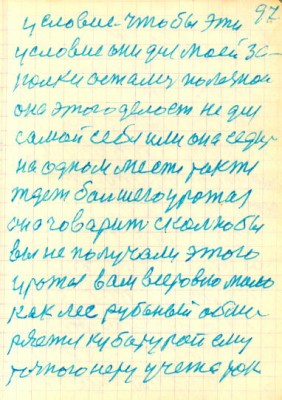 97
условие чтобы эти
условие они для моей за-
усталь полезной
она этого делает не для
самой себя или она седи
на одном месте
ждет большего урожая
она говарит сколко бы
вы не получали этого
урожая вам всеровно мало
как лес рубаный обме
ряжти кубатурой ему
точного нету учета как